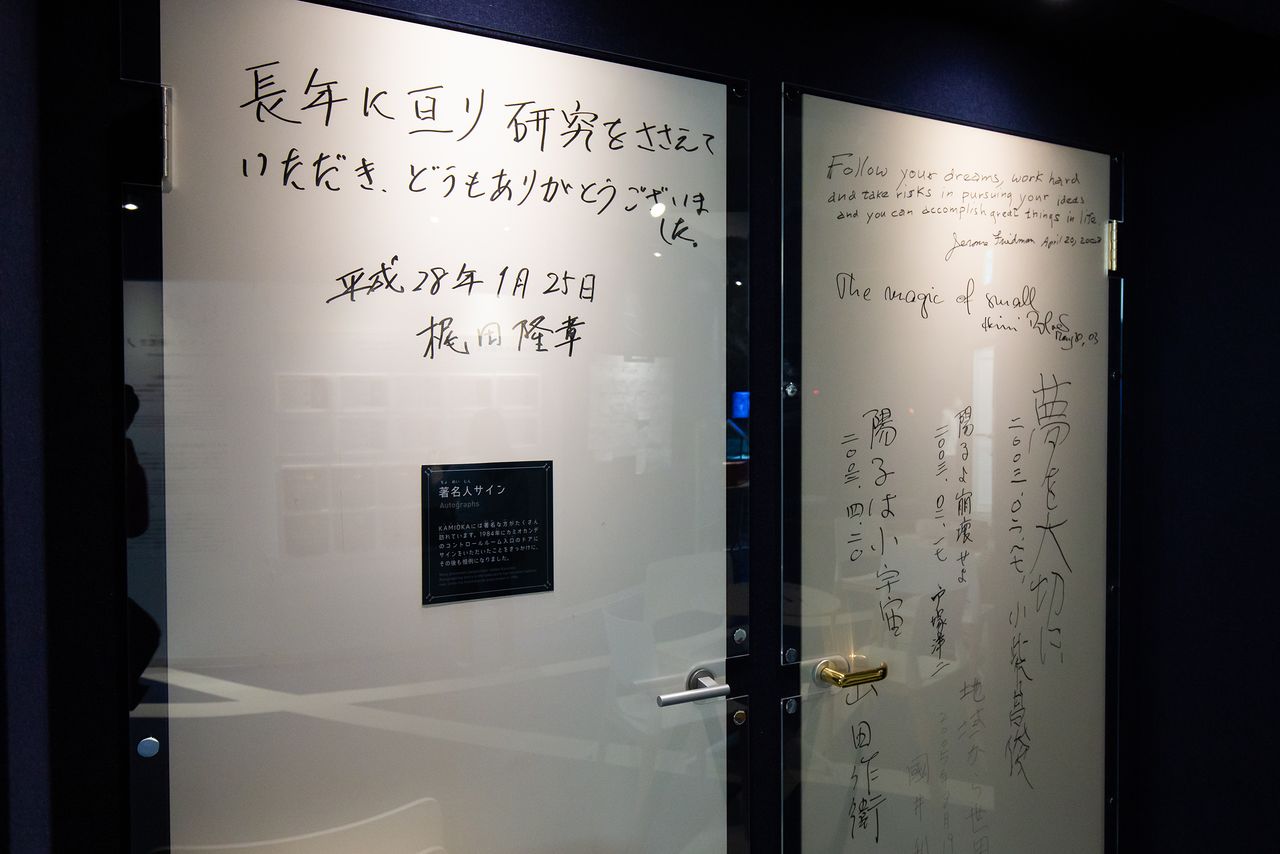 長年に亘り研究をささえて
いただき、どうもありがとうございま
した。
平成28年1月25日
梶田隆章
ちょ めい じん
著名人サイン
Autographs
KAMIOKAには著名な方がたくさん
訪れています。1984年にカミオカンデ
のコントロールルーム入口のドアに
サインをいただいたことをきっかけに、
その後も恒例になりました。
Follow your dreams, work hard
and take risks in pursuing your ideas
and you can accomplish great things in life
Jerome Friedman April 20,
The magic of small
May 30, 03
夢を大切に
二〇〇三、〇二、一七、小柴昌俊
陽子よ崩壊せよ
二〇〇三、〇二、一七
陽子は小宇宙
二〇〇三、四、二〇
山田作衛
地球から世界
國井